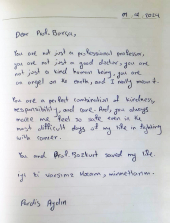 Dear Prof. Bursa,
You are not just a professional professor,
you are not just a good doctor, you are
not just a kind human being, you are
an angel on the earth, and I really mean it.
You are a perfect combination of kindness,
responsibility, and care. And, you always
made me feel so safe even in the
most difficult days of my life in fighting
with cancer.
You and Prof. Bozkurt saved my life.
iyi ki varsınız Hocam, minnettarım.
Aydın